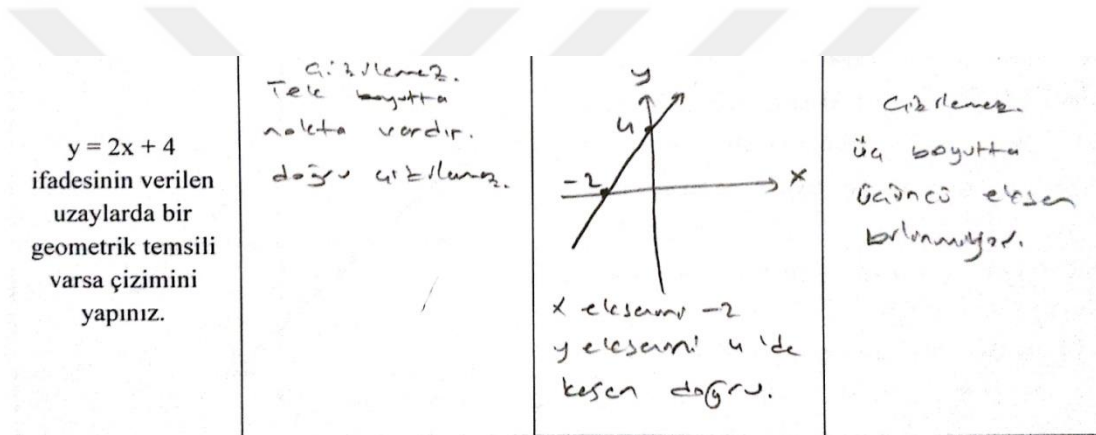 y = 2x + 4
ifadesinin verilen
uzaylarda bir
geometrik temsili
varsa çizimini
yapınız.
Çizilemez.
Tek boyutta
nokta vardır.
doğru çizilemez.
y
4
-2
x
x eksenini -2
y eksenini 4 'de
kesen doğru.
Çizilemez.
üç boyutta
üçüncü eksen
bilinmiyor.